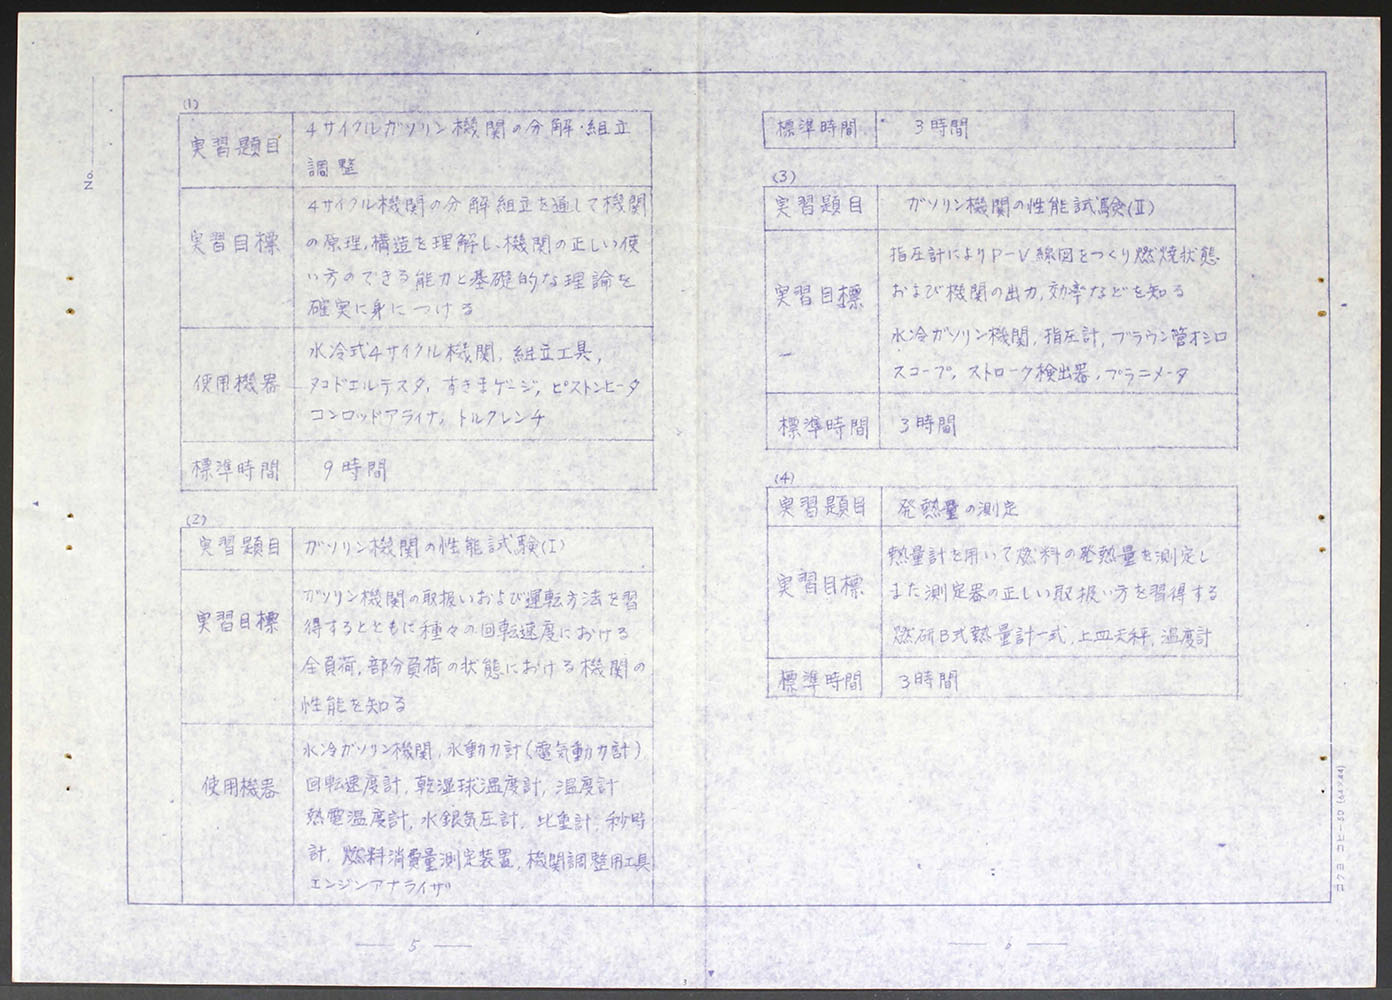 No.
(1)
実習題目 4サイクルガソリン機関の分解・組立
調整
実習目標 4サイクル機関の分解組立を通して機関
の原理,構造を理解し,機関の正しい使
い方のできる能力と基礎的な理論を
確実に身につける
使用機器 水冷式4サイクル機関,組立工具,
タコドエルテスタ,すきまゲージ,ピストンヒータ
コンロッドアライナ,トルクレンチ
標準時間 9時間
(2)
実習題目 ガソリン機関の性能試験(I)
実習目標 ガソリン機関の取扱いおよび運転方法を習
得するとともに種々の回転速度における
全負荷,部分負荷の状態における機関の
性能を知る
使用機器 水冷ガソリン機関,水動力計(電気動力計)
回転速度計,乾湿球温度計,温度計
熱電温度計,水銀気圧計,比重計,秒時
計,燃料消費量測定装置,機関調整用工具
エンジンアナライザ
5
標準時間 3時間
(3)
実習題目 ガソリン機関の性能試験(II)
実習目標 指圧計によりP-V線図をつくり燃焼状態
および機関の出力,効率などを知る
水冷ガソリン機関,指圧計,ブラウン管オシロ
スコープ,ストローク検出器,プラニメータ
標準時間 3時間
(4)
実習題目 発熱量の測定
実習目標 熱量計を用いて燃料の発熱量を測定し
また測定器の正しい取扱い方を習得する
燃研B式熱量計一式,上皿天秤,温度計
標準時間 3時間
6
コクヨ コヒー50